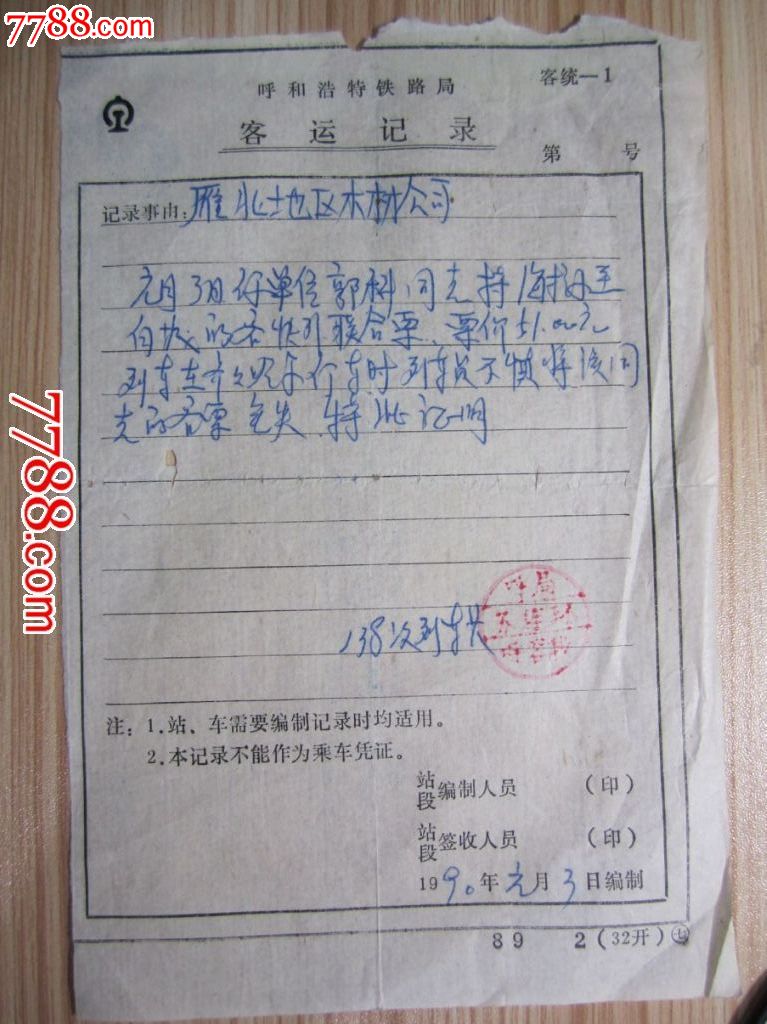 7788.com
呼和浩特铁路局
客统—1
客运记录
第 号
记录事由:雁北地区木材公司
元月3日你单位郭科同志持海拉尔至
白城的客快联合票,票价51.00元
列车在 停车时列车员不慎将该同
志的客票丢失 特此证明
7788.com
呼局
138次列车长
注:1.站、车需要编制记录时均适用。
2.本记录不能作为乘车凭证。
站段编制人员 (印)
站段签收人员 (印)
1990年元月3日编制
89 2(32开)㊆